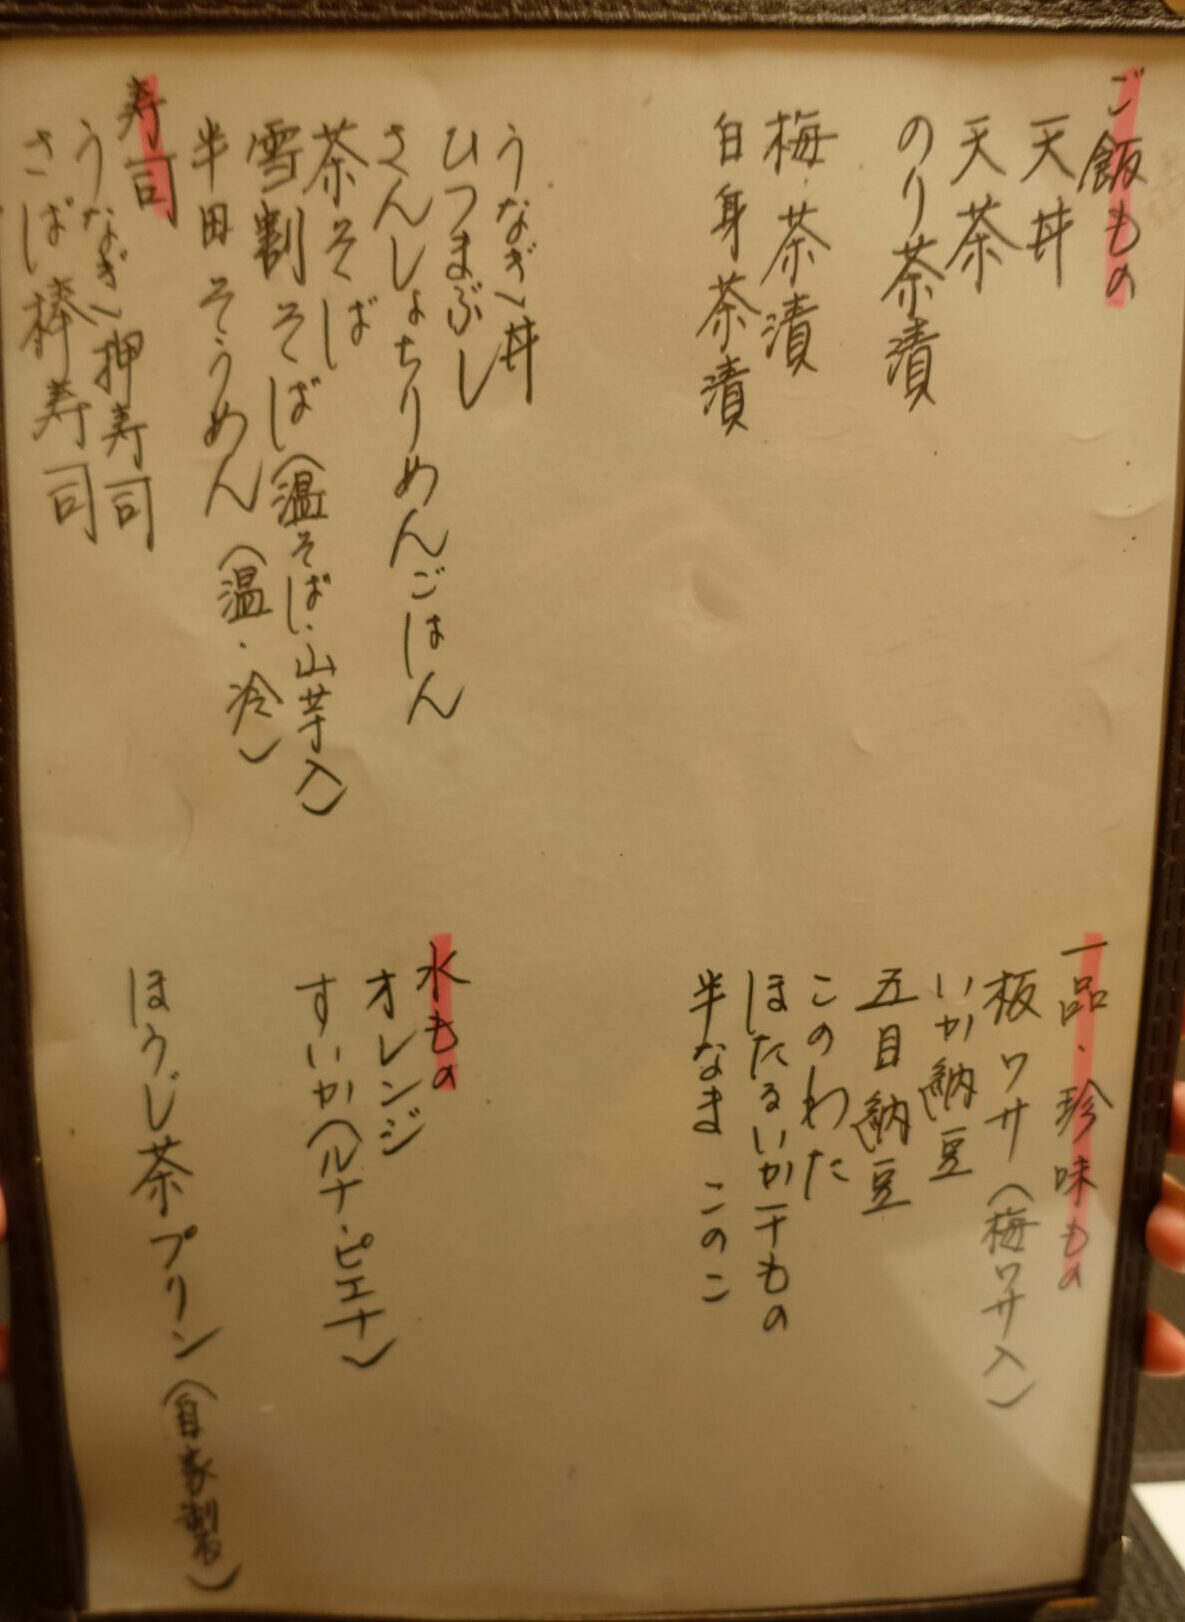 ご飯もの
天丼
天茶
のり茶漬
梅茶漬
白身茶漬
うなぎ丼
ひつまぶし
さんしょちりめんごはん
茶そば
雪割そば(温そば・山芋入)
半田そうめん(温・冷)
寿司
うなぎ押寿司
さば棒寿司
一品・珍味もの
板ワサ(梅ワサ入)
いか納豆
五目納豆
このわた
ほたるいか干もの
半なま このこ
水もの
オレンジ
すいか(ルナ・ピエナ)
ほうじ茶プリン(自家製)